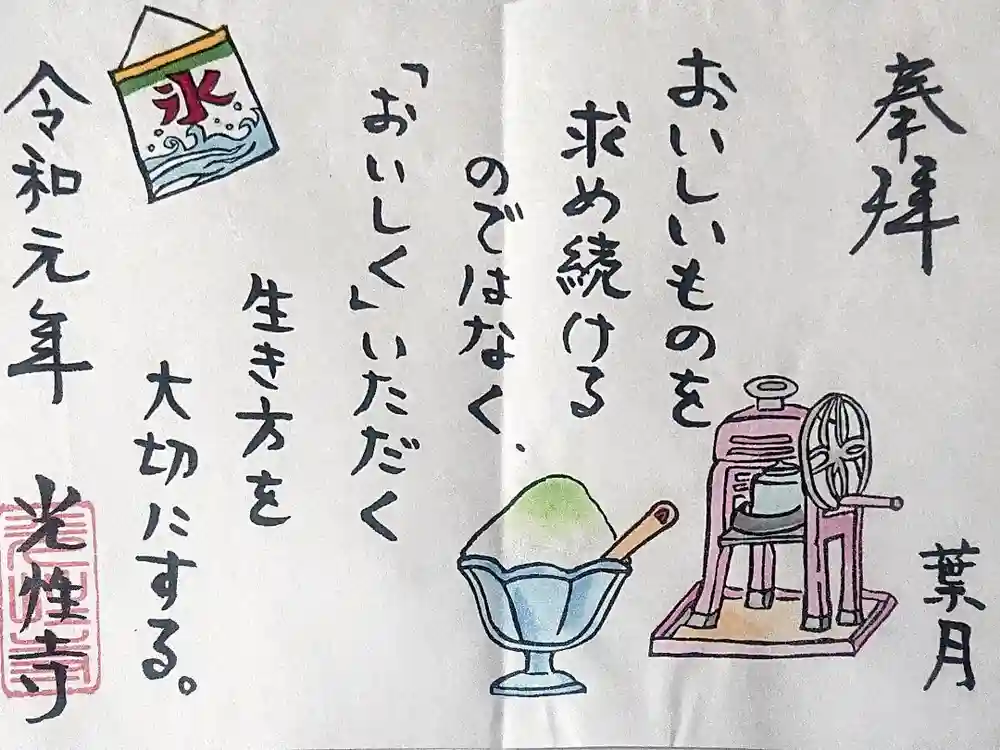 奉拝
葉月
おいしいものを
求め続ける
のではなく、
「おいしく」いただく
生き方を
大切にする。
氷
令和元年
光性寺